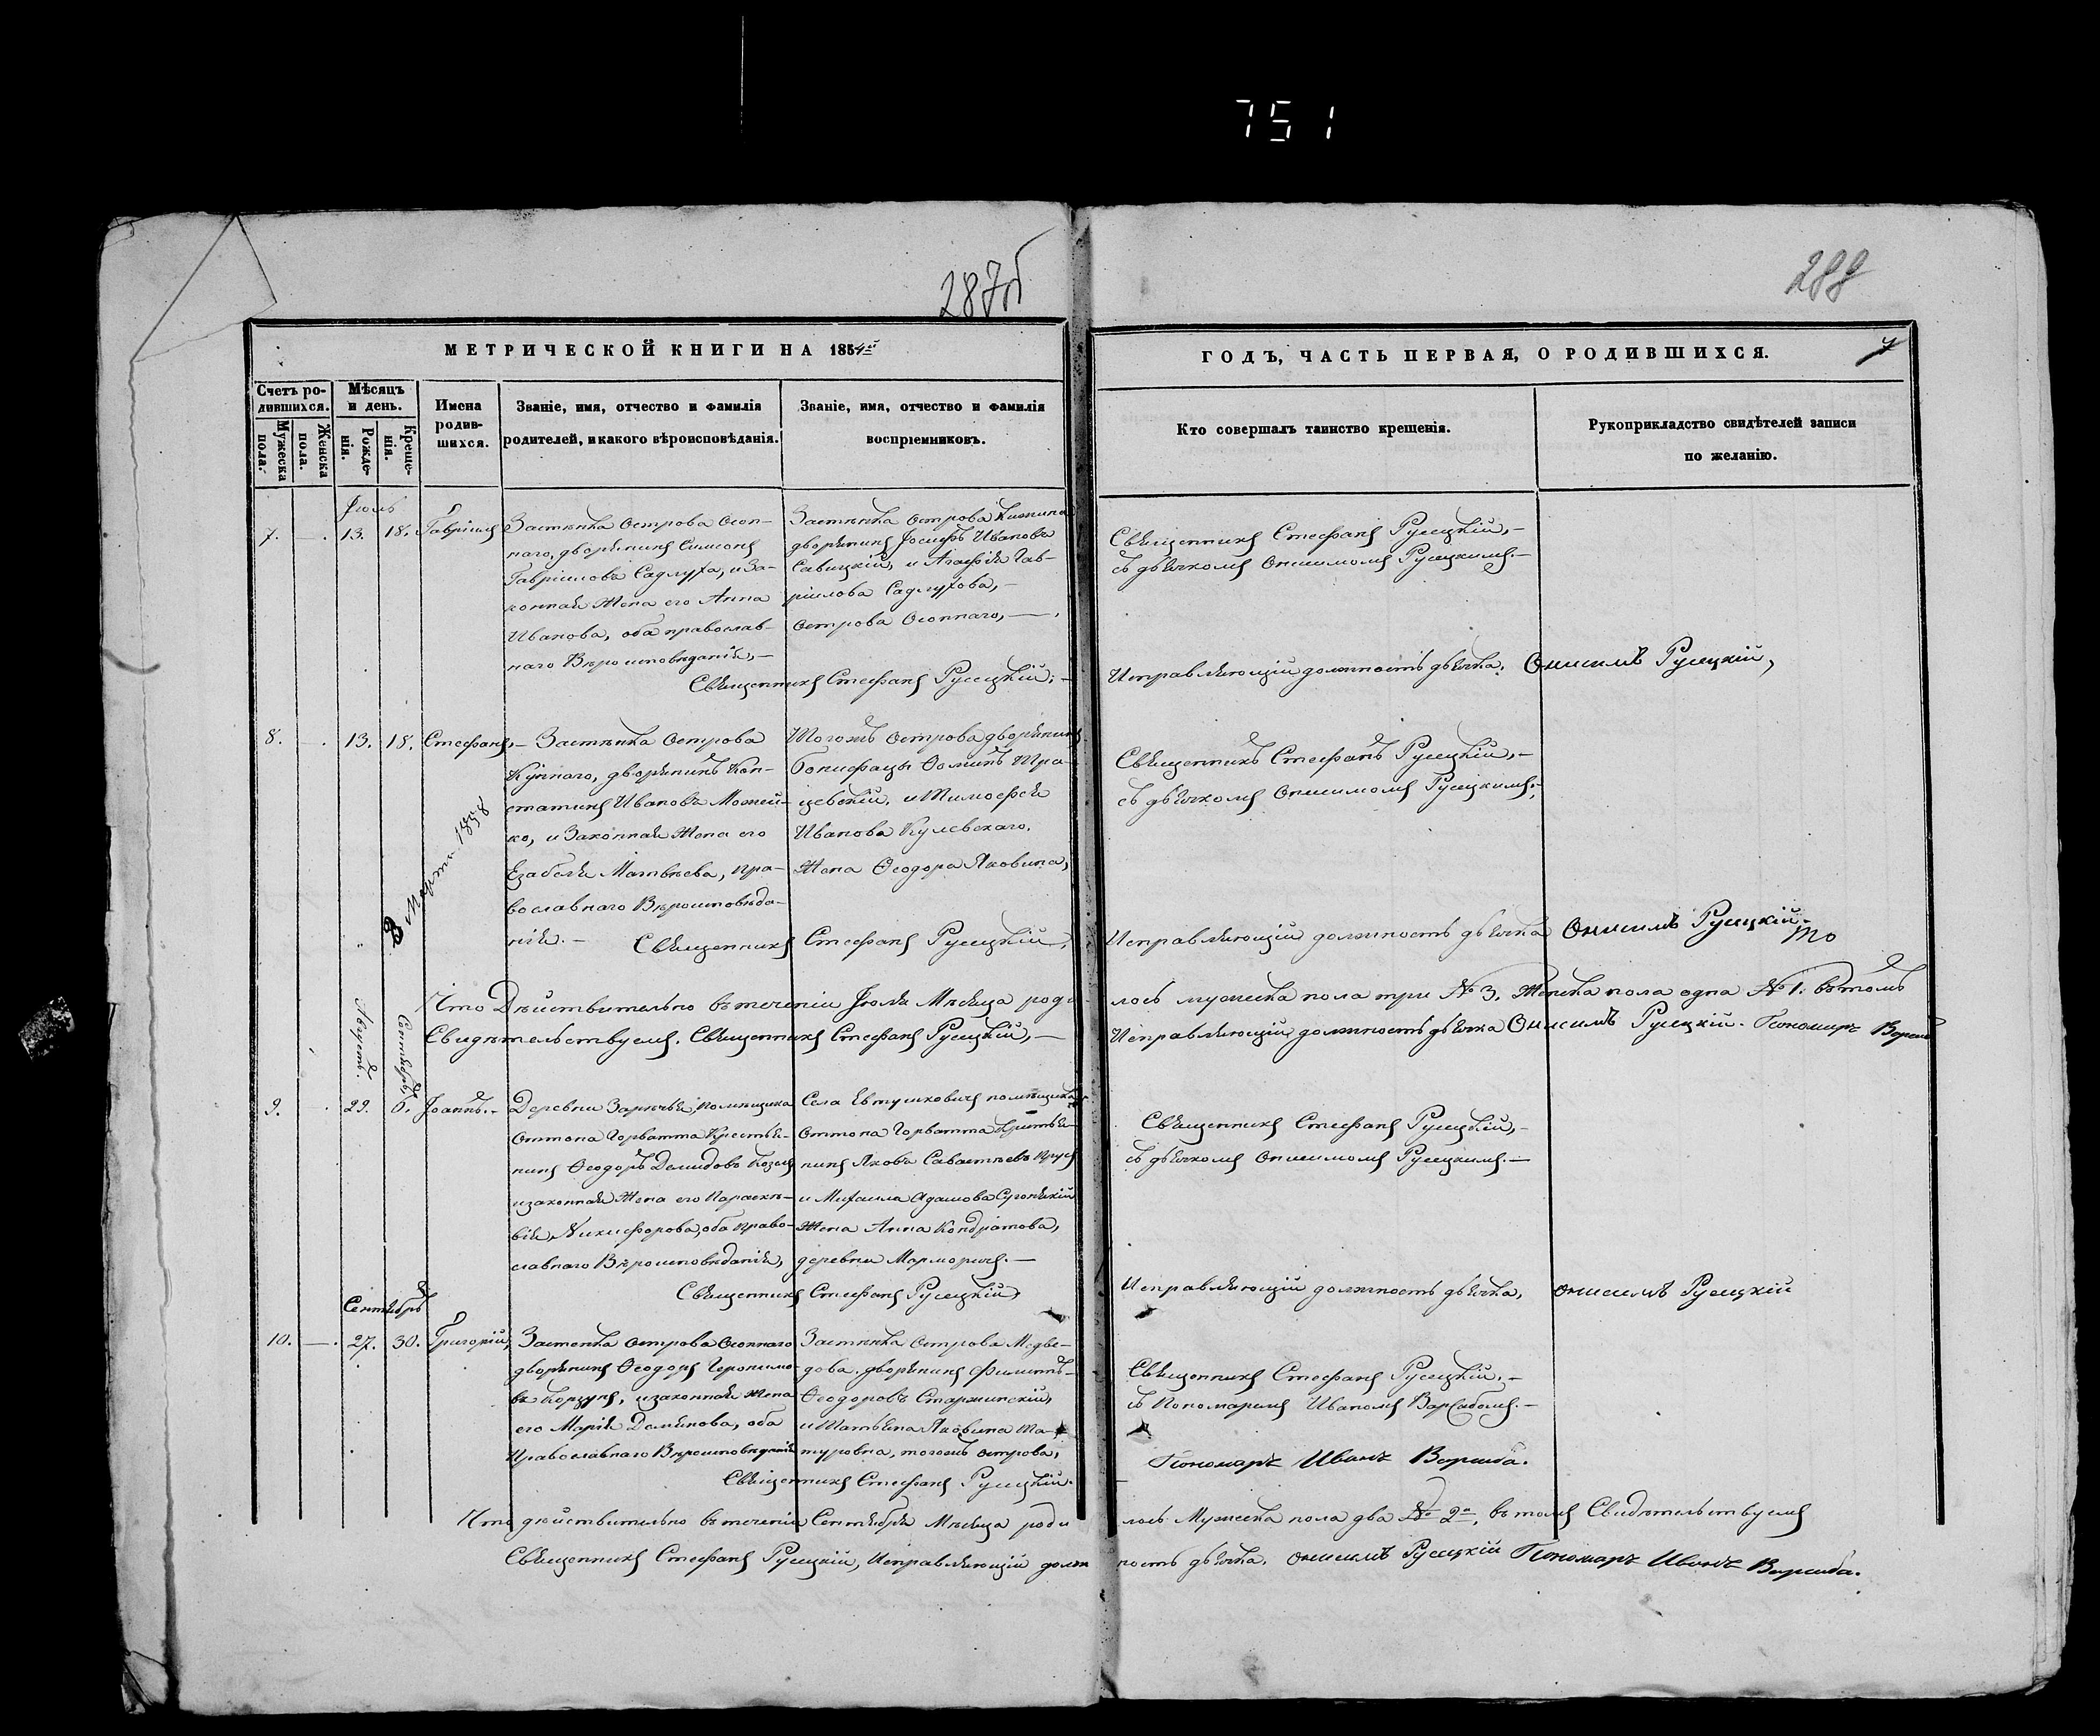 751
287об
288
МЕТРИЧЕСКОЙ КНИГИ НА 1854й
ГОДЪ, ЧАСТЬ ПЕРВАЯ, О РОДИВШИХСЯ.
7
Счетъ ро-
дившихся.
Мужеска
пола.
Женска
пола.
Мѣсяцъ
и день.
Рожде-
нія.
Креще-
нія.
Имена
родив-
шихся.
Званіе, имя, отчество и фамилія
родителей, и какого вѣроисповѣданія.
Званіе, имя, отчество и фамилія
воспріемниковъ.
Кто совершалъ таинство крещенія.
Рукоприкладство свидѣтелей записи
по желанію.
Іюль
7. — 13. 18. Гавріилъ
Застѣнка Острова Осоп-
наго, дворянинъ Симонъ
Гавріиловъ Садлуха, и за-
конная Жена его Анна
Иванова, оба православ-
наго Вѣроисповѣданія, —
Застѣнка Острова
дворянинъ Іосифъ Ивановъ
Савицкій, и Агафія Гав-
ріилова Садлухова, —
Острова Осопнаго, —
Священникъ Стефанъ Русецкій, —
Священникъ Стефанъ Русецкій, —
съ дьячкомъ Онисимомъ Русецкимъ. —
Исправляющій должность дьячка. Онисимъ Русецкій,
8. — 13. 18. Стефанъ, —
Застѣнка Острова
дворянинъ Кон-
стантинъ Ивановъ Можей-
ко, и Законная Жена его
Езабеля Матвѣева, пра-
вославнаго Вѣроисповѣда-
нія. —
Тогожъ Острова дворянинъ
Бонифацы Ѳоминъ
и Тимофея
Иванова Кулевскаго.
Жена Ѳеодора Яковина,
Священникъ Стефанъ Русецкій,
Марта 1858
Священникъ Стефанъ Русецкій, —
съ дьячкомъ Онисимомъ Русецкимъ;
Исправляющій должность дьячка Онисимъ Русецкій.
Что Дѣйствительно въ теченіи Іюля Мѣсяца роди
лось мужеска пола три № 3. Женска пола одна № 1. въ томъ
Свидѣтельствуемъ. Священникъ Стефанъ Русецкій, —
Исправляющій должность дьячка Онисимъ Русецкій. Пономарь
Августъ.
Сентябрь
9. — 29. 6. Іоаннъ. —
Деревни Зарѣчья помѣщика
Оттона Горватта Крестья-
нинъ Ѳеодоръ Демидовъ Козелъ
и законная Жена его Параске-
вія, Никифорова, оба Право-
славнаго Вѣроисповѣданія,
Села Евтушковичъ помѣщика
Оттона Горватта Крестья-
нинъ Яковъ Савастѣевъ
и Михаила Адамова
Жена Анна Кондратова,
деревни Мармовичъ. —
Священникъ Стефанъ Русецкій,
Священникъ Стефанъ Русецкій, —
съ дьячкомъ Онисимомъ Русецкимъ. —
Исправляющій должность дьячка, Онисимъ Русецкій
Сентябрь
10. — 27. 30. Григорій,
Застенка Острова Осопнаго
дворянинъ Ѳеодоръ Геронимо-
въ Корзунъ, и законная Жена
его Марія Демянова, оба
Православнаго Вѣроисповѣданія
Застѣнка Острова Медве-
дова. дворянинъ Филиппъ
Ѳеодоровъ Старжинскій,
и Татьяна Яковина
тогожъ острова,
Священникъ Стефанъ Русецкій.
Священникъ Стефанъ Русецкій. —
съ Пономаремъ Иваномъ
Пономарь Иванъ
Что дѣйствительно въ теченіи Сентября Мѣсяца роди
лось Мужеска пола два № 2й, въ томъ Свидѣтельствуемъ
Священникъ Стефанъ Русецкій, Исправляющій долж
ность дьячка. Онисимъ Русецкій Пономарь Иванъ